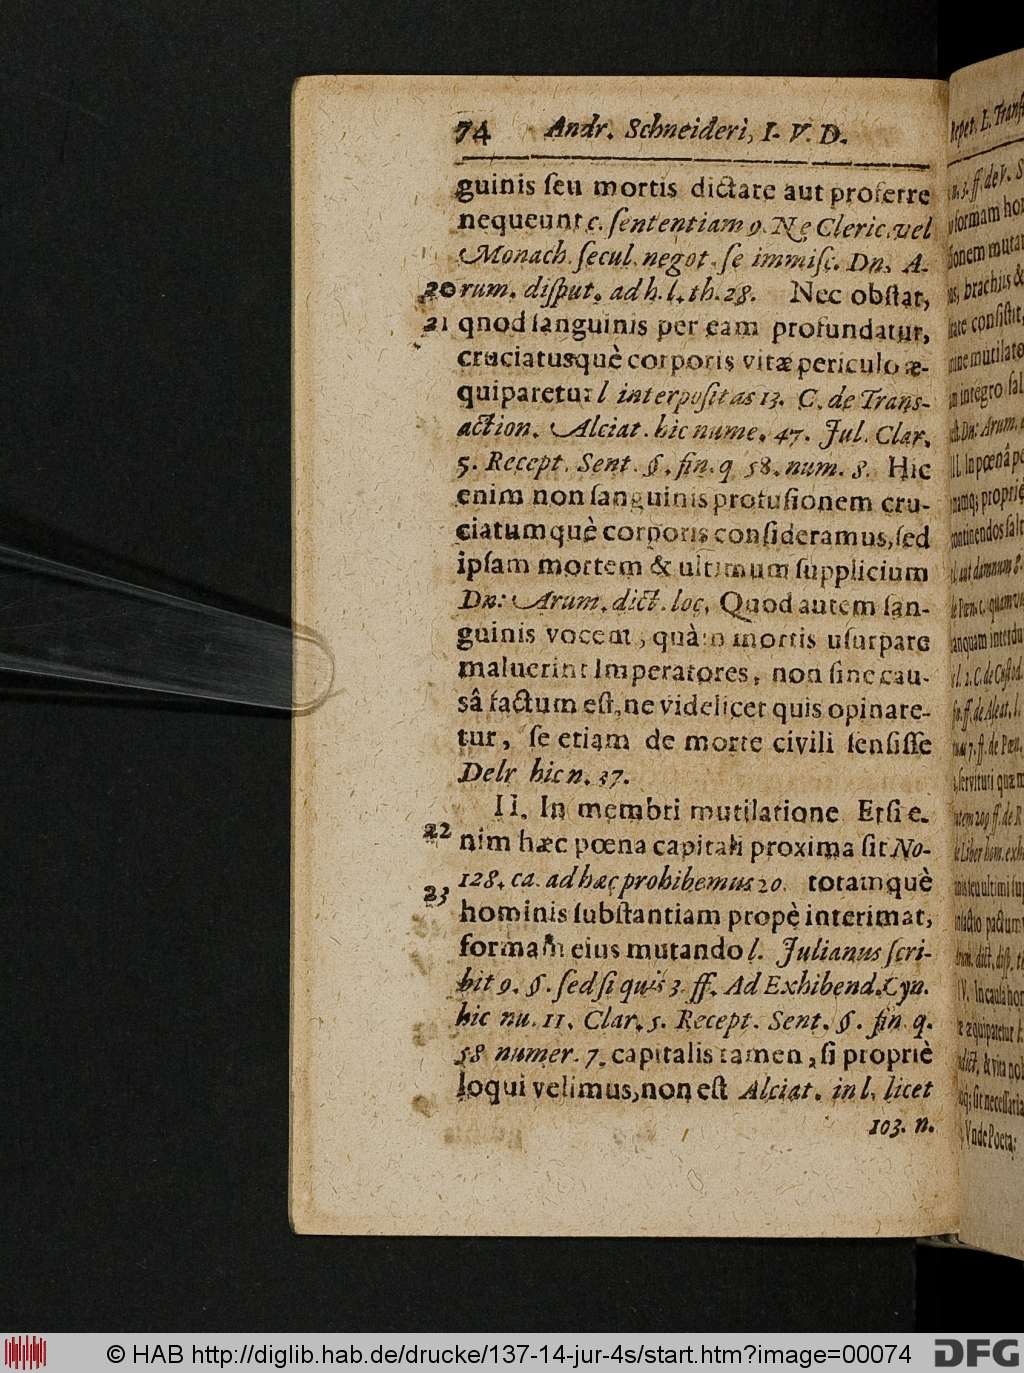 74 Andr. Schneideri, I. V. D.
guinis ſeu mortis dictare aut proferre
nequeunt c. ſententiam 9. Ne Cleric. vel
Monach. ſecul. negot. ſe immiſc. Dn. A-
20 rum. diſput. ad h. l. th. 28. Nec obſtat,
21 qnod ſanguinis per eam profundatur,
cruciatusquè corporis vitæ periculo æ-
quiparetur l interpoſitas 13. C. de Trans-
action. Alciat. hic nume. 47. Jul. Clar.
5. Recept. Sent. §. fin. q 58. num. 8. Hic
enim non ſanguinis profuſionem cru-
ciatumquè corporis conſideramus, ſed
ipſam mortem & ultimum ſupplicium
Dn: Arum. dict. loc. Quod autem ſan-
guinis vocem, quàm mortis uſurpare
maluerint Imperatores, non ſine cau-
sâ factum eſt, ne videlicet quis opinare-
tur, ſe etiam de morte civili ſenſiſſe
Delr hic n. 37.
II. In membri mutilatione Etſi e-
22 nim hæc pœna capitali proxima ſit No-
128. ca. ad hæc prohibemus 20. totamquè
23 hominis ſubſtantiam propè interimat,
formam eius mutando l. Julianus ſcri-
bit 9. §. ſed ſi quis 3. ff. Ad Exhibend. Cyn.
hic nu. 11. Clar. 5. Recept. Sent. §. fin q.
58 numer. 7. capitalis tamen, ſi propriè
loqui velimus, non eſt Alciat. in l. licet
103. n.
© HAB http://diglib.hab.de/drucke/137-14-jur-4s/start.htm?image=00074
DFG